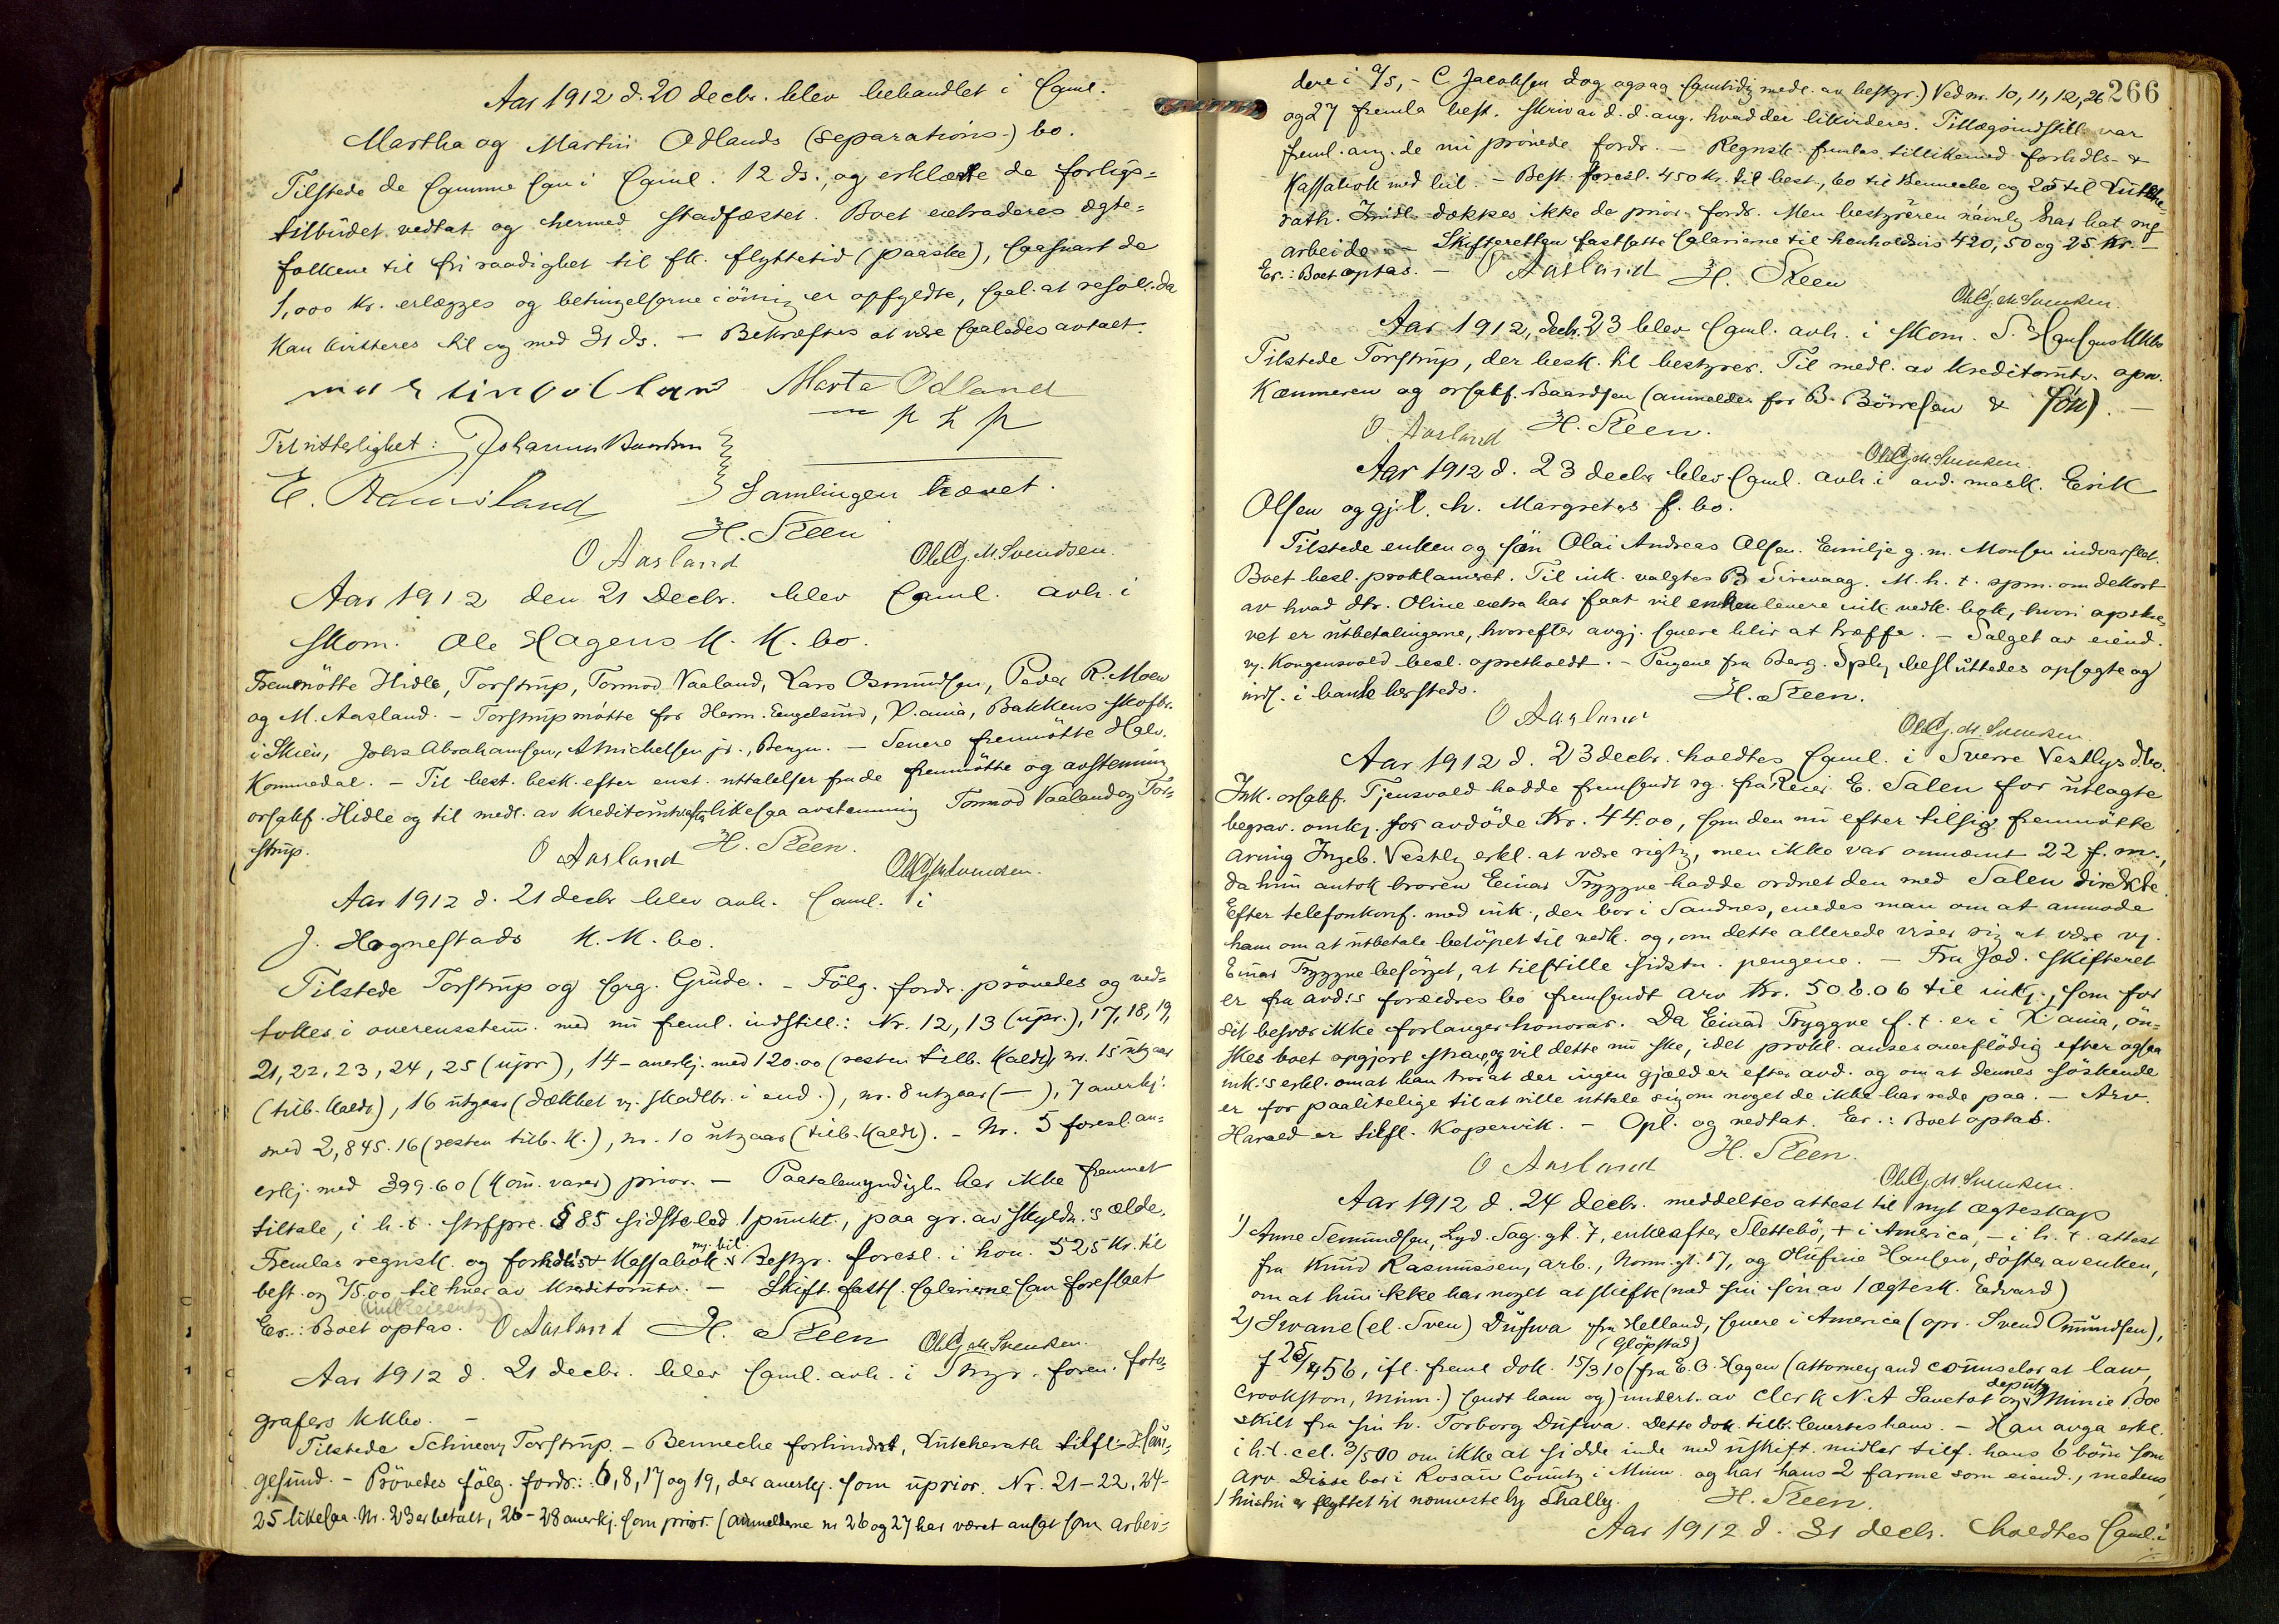 Aar 1912 d. 20 decbr. blev behandlet i saml.
Martha og Martin Odlands (separations-) bo.
Tilstede de samme som i saml. 12 ds., og erklærte de forligs=
tilbudet vedtat og hermed stadfæstet. Boet extraderes ægte=
folkene til fri raadighet til fk. flyttetid (paaske), saasnart de
1,000 kr. erlægges og betingelserne iövrig er opfyldte, saal. at resol. da
kan kvitteres til og med 31 ds. — Bekræftes at være saaledes avtalt.
martin odland Marta Odland
m p h p
Til vitterlighet: Johannes
E. Ramsland Samlingen hævet.
H. Steen
O Aasland Ole Gj. M. Svendsen.
Aar 1912 den 21 Decbr. blev saml. avh. i
skom. Ole Hagens K. K. bo.
Fremmötte Hidle, Torstrup, Tormod Vaaland, Lars Osmundsen, Peder R. Moen
og M. Aasland. — Torstrup mötte for Herm. Engelsund, X.ania, Bakkens skofbr.
i Skien, Johs Abrahamsen, A Michelsen jr., Bergen. — Senere fremmötte Halv.
Kommedal. — Til best. besk. efter enst. uttalelser fra de fremmötte og avstemning
orsakf. Hidle og til medl. av kreditorutv. efter likesaa avstemning Tormod Vaaland og Tor=
strup.
O Aasland H. Steen.
Ole Gj M Svendsen.
Aar 1912 d. 21 decbr blev avh. saml. i
J. Hognestads K. K. bo.
Tilstede Torstrup og sorg. Grude. — Fölg. fordr. prövedes og ved=
tokes i overensstem. med nu freml. indstill.: Nr. 12, 13 (upr.), 17, 18, 19,
21, 22, 23, 24, 25 (upr), 14 — anerkj. med 120.00 (resten tilb. kaldt), nr. 15 utgaar
(tilb. kaldt), 16 utgaar (dækket vj. skadbr. i eiend.), nr. 8 utgaar (—), 7 anerkj.
med 2,845.16 (resten tilb. k.), nr. 10 utgaar (tilb. kaldt). — Nr. 5 foresl. an=
erkj. med 399.60 (kom. varer) prior. — Paatalemyndigh. har ikke fremmet
tiltale, i h. t. strfpre. § 85 sidste led 1 punkt., paa gr. av skyldn.s ælde.
Fremlas regnsk. og forhdls & kassabok m. bil. Bestyr. foresl. i hon. 525 kr. til
best. og 75.00 til hver av kreditorutv. — Skift. fasts. salarierne som foreslaat
Er.: Boet optas. O Aasland H. Steen Ole Gj M Svendsen.
Aar 1912 d. 21 decbr. blev saml. avh. i foren. foto=
grafers kkbo. —
Tilstede Schiverg Torstrup. — Benneche forhindret, Lutcherath tilst. i Hau=
gesund. — Prövedes fölg. fordr.: 6, 8, 17 og 19, der anerkj. som uprior. Nr. 21-22, 24-
25 likesaa. Nr. 23 er betalt, 26-28 anerkj. som prior. (anmelderne nr 26 og 27 har været ansat som arbei=
266
dere i A/S, — C Jacobsen dog ogsaa samtidig medl. av bestyr.) Ved nr. 10, 11, 12, 26
og 27 fremla best. skriv av d. d. ang. hvad der likvideres. Tillægsindstill. var
freml. ang. de nu prövede fordr. — Regnsk. fremlas tillikemed forhdls- &
Kassabok med bil. — Best. foresl. 450 kr. til best., 60 til Benneche og 25 til Lutche=
rath. dækkes ikke de prior. fordr. Men bestyreren nævnlig har hat meg
arbeide. — Skifteretten fastsatte salarierne til henholdsvis 420, 50 og 25 kr. —
Er.: Boet optas. — O Aasland H. Steen
Ole Gj. M Svendsen.
Aar 1912, decbr. 23 blev saml. avh. i skom. S. Hansens kkbo
Tilstede Torstrup, der besk. til bestyrer. Til medl. av kreditorutv. opn.
Kæmneren og orsakf. Baardsen (anmelder for B. Börresen & Sön). —
O. Aasland H. Steen.
Ole Gj M Svendsen.
Aar 1912 d. 23 decbr blev saml. avh. i avd. mask. Erik
Olsen og gjl. h. Margretes f. bo.
Tilstede enken og sön Olai Andreas Olsen. Emilje g. m. Monsen indvarslet.
Boet besl. proklameret. Til ink. valgtes B Sirevaag. M. h. t. spm. om dekort
av hvad dtr. Oline extra har faat vil enken levere ink. vedk. bok, hvori opskre=
vet er utbetalingerne, hvorefter avgj. senere blir at træffe. — Salget av eiend.
vj. Kongensvold besl. opretholdt. — Pengene fra Berg. Splg besluttedes opsagte og
inds. i bank hersteds. H. Steen.
O Aasland
Ole Gj. M. Svendsen.
Aar 1912 d. 23 decbr. holdtes saml. i Sverre Vestlys dbo.
Ink. orsakf. Tjensvold hadde fremsendt rg. fra Reier E. Salen for utlagte
begrav. omkj. for avdöde Kr. 44.00, som den nu efter tilsig. fremmötte
arving Ingeb. Vestly erkl. at være rigtig, men ikke var omnævnt 22 f. m.,
da hun antok broren Einar Tryggve hadde ordnet den med Salen direkte.
Efter telefonkonf. med ink., der bor i Sandnes, enedes man om at anmode
ham om at utbetale belöpet til vedk. og, om dette allerede viser sig at være vj.
Einar Tryggve besörget, at tilstille sidstn. pengene. — Fra Jæd. skifteret
er fra avd.s forældres bo fremsendt arv Kr. 508.06 til ink., som for
sit besvær ikke forlanger honorar. Da Einar Tryggve f. t. er i X.ania, ön=
skes boet opgjort straks, og vil dette nu ske, idet prokl. anses overflödig efter ogsaa
ink.s erkl. om at han tror at der ingen gjæld er efter avd. og om at dennes söskende
er for paalitelige til at ville uttale sig om noget de ikke har rede paa. — Arv.
Harald er tilst. Kopervik. — Opl. og vedtat. Er.: Boet optas.
O Aasland H. Steen.
Ole Gj. M Svendsen.
Aar 1912 d. 24 decbr. meddeltes attest til nyt ægteskap
1) Anne Semundsen, Lyd. Sag. gt. 7, enke efter Slettebö, + i America, — i h. t. attest
fra Knud Rasmussen, arb., Norm. gt. 17, og Olufine Hansen, söster av enken,
om at hun ikke har noget at skifte (med sin sön av 1 ægtesk. Edvard)
2) Svane (el. Sven) Dufwa fra Helland, senere i America (opr. Svend Omundsen),
(Glöpstad)
f 25/4 56, ifl. freml dok. 15/3 10 (fra E. O. Hagen (attorney and counselor at law,
Crookston, Minn.) sendt ham og) undert. av Clerk N. A og deputy Minie Boe
skilt fra sin h. Torborg Dufwa. Dette dok. tilb. levertes ham. — Han avga erkl.
i h. t. cel. 3/5 00 om ikke at sidde inde med uskift. midler tilh. hans 6 börn som
arv. Disse bor i Rosau County i Minn. og har hans 2 farme som eiend., medens
hustru er flyttet til nærmeste by Thally. H. Steen.
Aar 1912 d. 31 decbr. holdtes saml. i